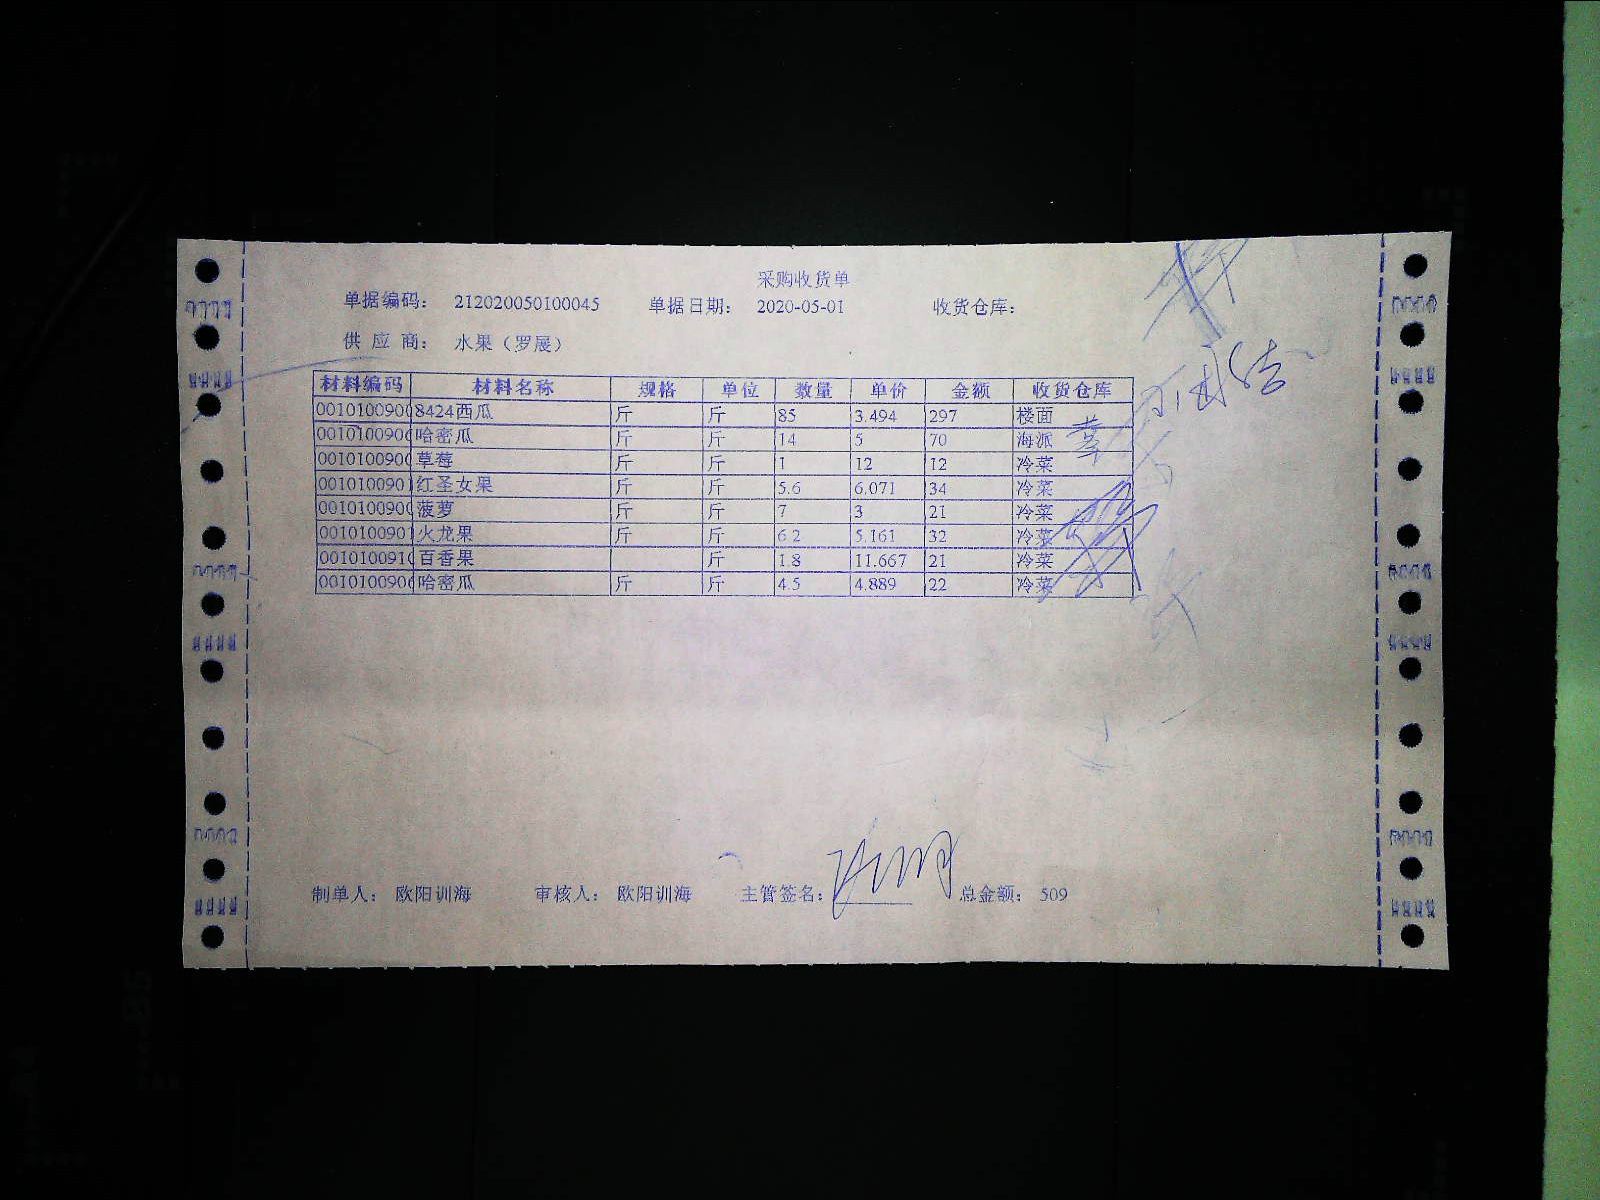 采购收货单
单据编码: 212020050100045 单据日期: 2020-05-01 收货仓库:
供应商: 水果（罗展）
材料编码 材料名称 规格 单位 数量 单价 金额 收货仓库
0010100900 8424西瓜 斤 斤 85 3.494 297 楼面
0010100906 哈密瓜 斤 斤 14 5 70 海派
0010100900 草莓 斤 斤 1 12 12 冷菜
001010090 红圣女果 斤 斤 5.6 6.071 34 冷菜
0010100900 菠萝 斤 斤 7 3 21 冷菜
001010090 火龙果 斤 斤 6.2 5.161 32 冷菜
001010091 百香果 斤 1.8 11.667 21 冷菜
0010100906 哈密瓜 斤 斤 4.5 4.889 22 冷菜
制单人: 欧阳训海 审核人: 欧阳训海 主管签名: 总金额: 509